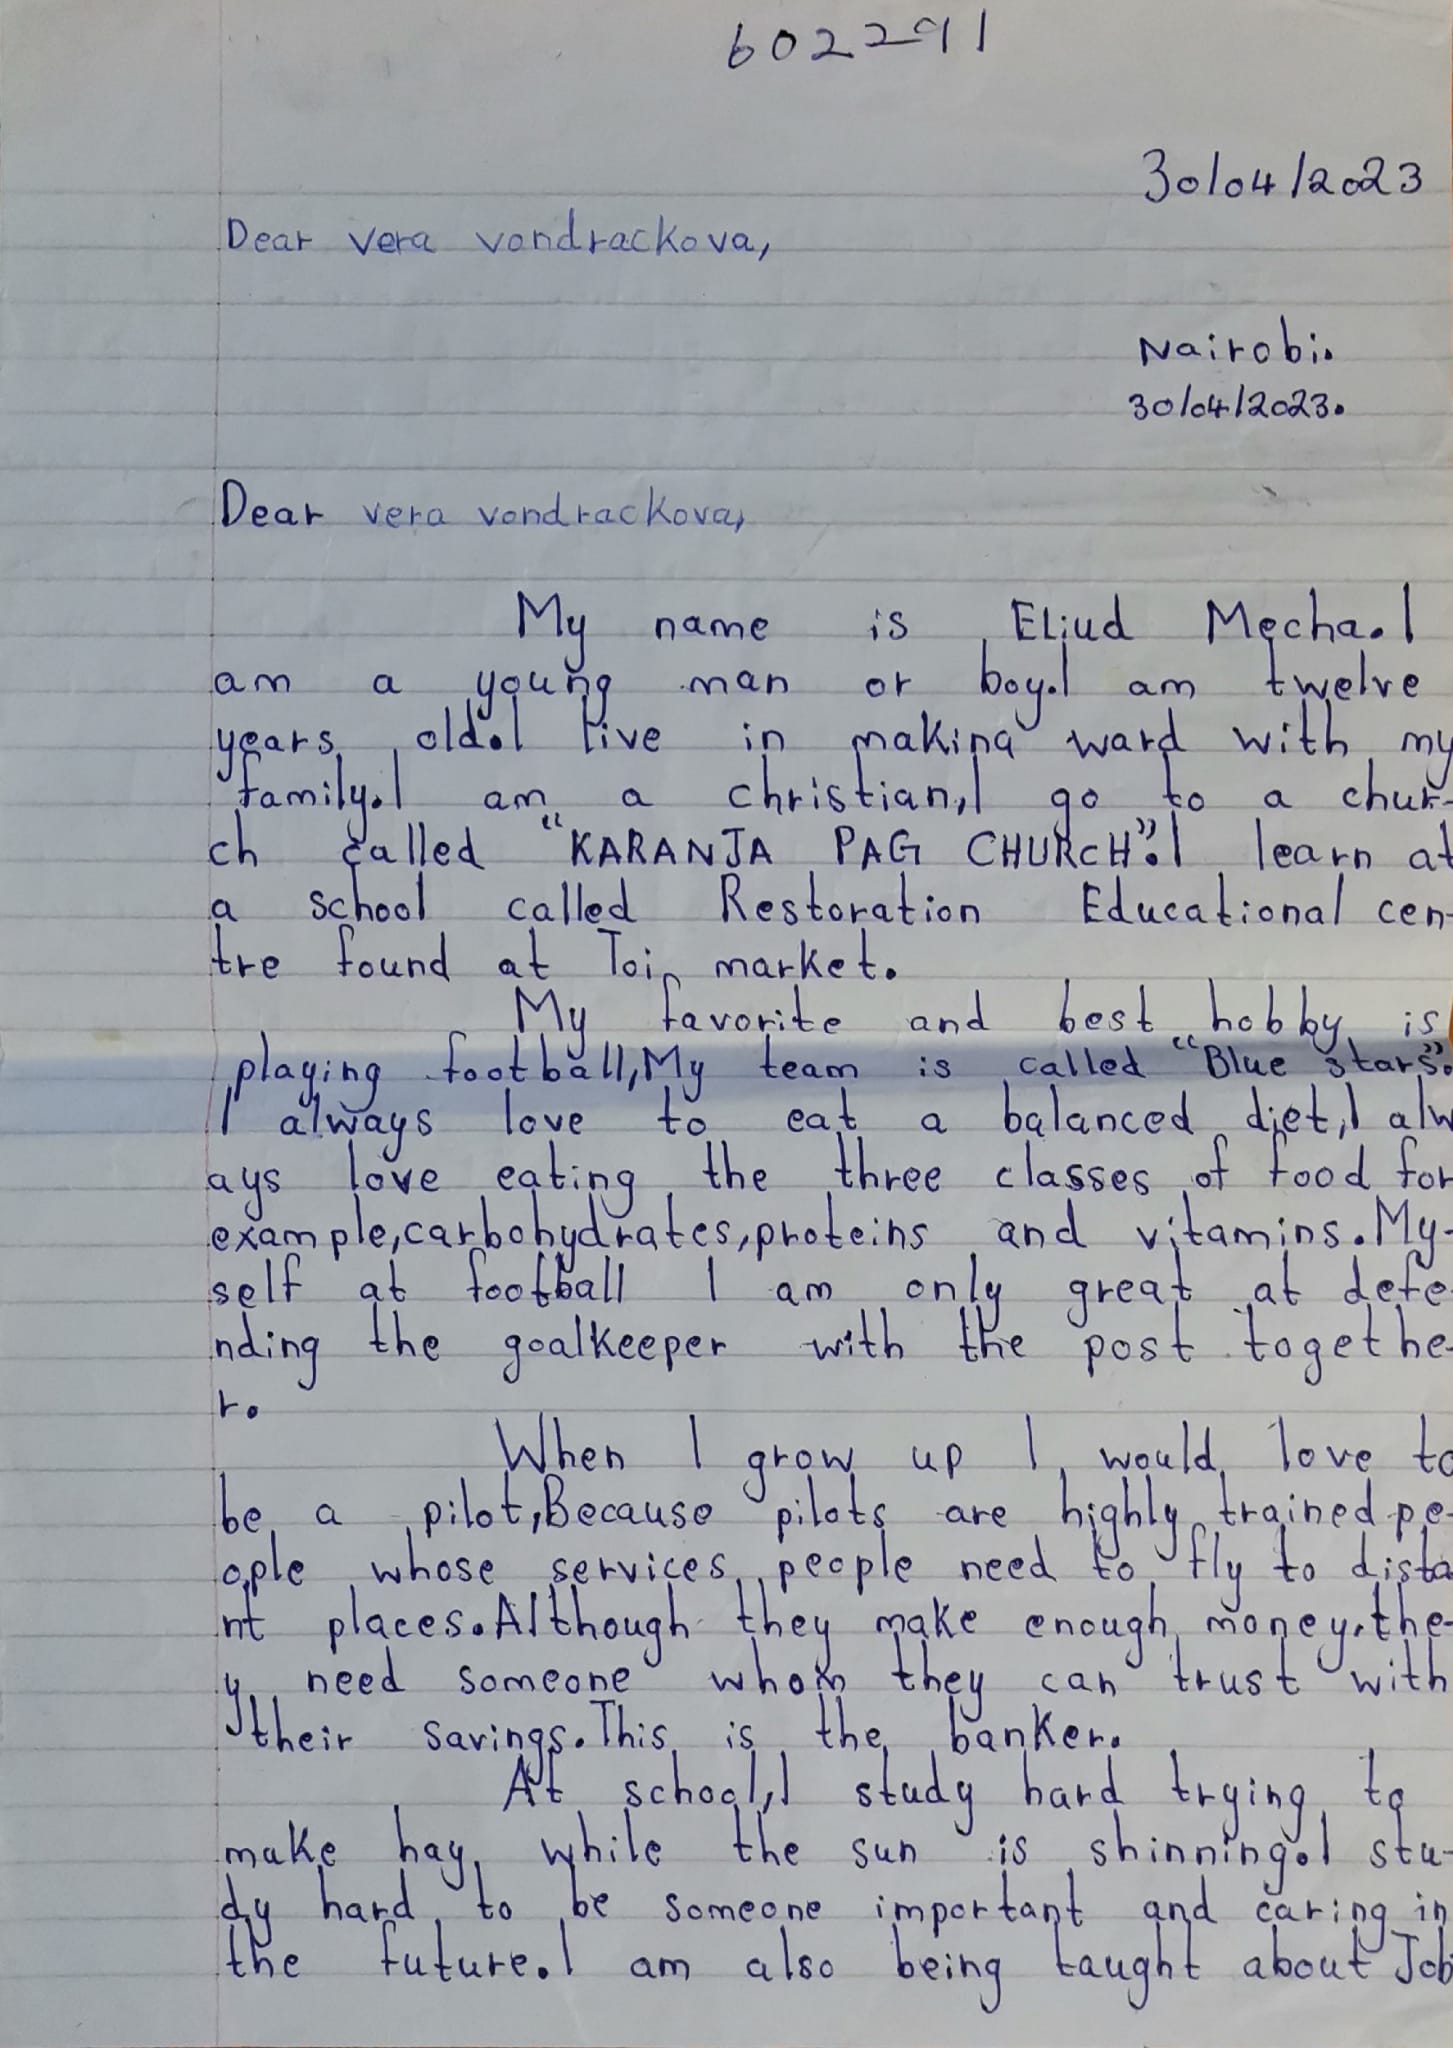 602291
30/04/2023
Dear vera vondrackova,
Nairobi.
30/04/2023.
Dear vera vondrackova,
My name is Eliud Mecha. I
am a young man or boy. I am twelve
years old. I live in making ward with my
family. I am a christian, I go to a chur-
ch called "KARANJA PAG CHURCH". I learn at
a school called Restoration Educational cen-
tre found at Toi market.
My favorite and best hobby is
playing football, My team is called "Blue stars".
I always love to eat a balanced diet, I alw
ays love eating the three classes of food for
example, carbohydrates, proteins and vitamins. My-
self at football I am only great at defe-
nding the goalkeeper with the post togethe-
r.
When I grow up I would love to
be a pilot, Because pilots are highly trained pe-
ople whose services people need to fly to dista
nt places. Although they make enough money, the-
y need someone whom they can trust with
their savings. This is the banker.
At school, I study hard trying to
make hay while the sun is shinning. I stu-
dy hard to be someone important and caring in
the future. I am also being taught about Job